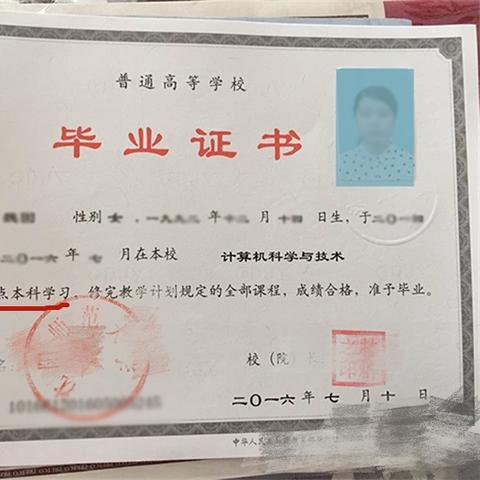 普通高等学校
毕业证书
性别 女，一九九二年十二月十四日生，于二〇一四
二〇一六年七月在本校 计算机科学与技术
点本科学习 修完教学计划规定的全部课程，成绩合格，准予毕业。
名：
校（院）长
二〇一六年七月十日
中华人民